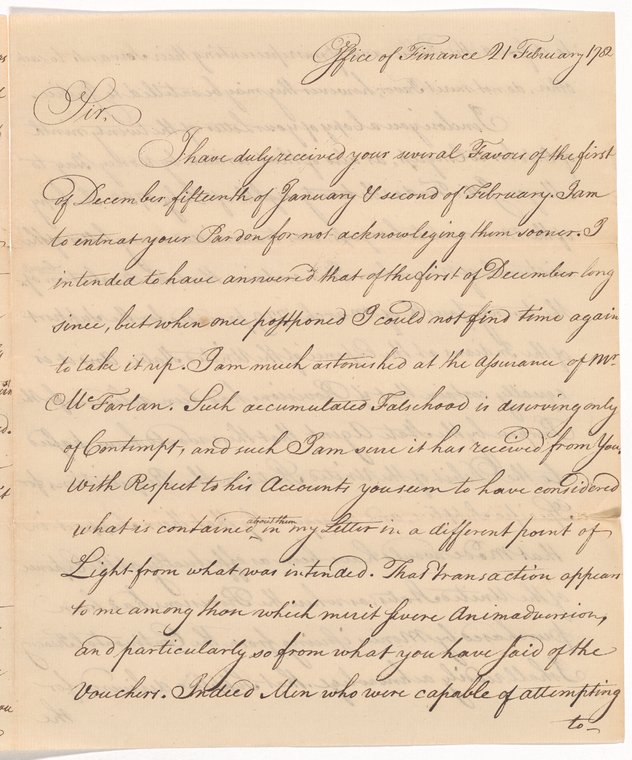 Office of Finance 21 February 1782
Sir,
I have duly received your several Favors of the first
of December, fifteenth of January & second of February. I am
to entreat your Pardon for not acknowleging them sooner. I
intended to have answered that of the first of December long
since, but when once postponed I could not find time again
to take it up. I am much astonished at the assurance of Mr.
McFarlan. Such accumulated Falsehood is deserving only
of Contempt, and such I am sure it has received from You.
With Respect to his Accounts you seem to have considered
what is contained about them in my Letter in a different point of
Light from what was intended. That transaction appears
to me among those which merit severe Animadversion,
and particularly so from what you have said of the
Vouchers. Indeed Men who were capable of attempting
to